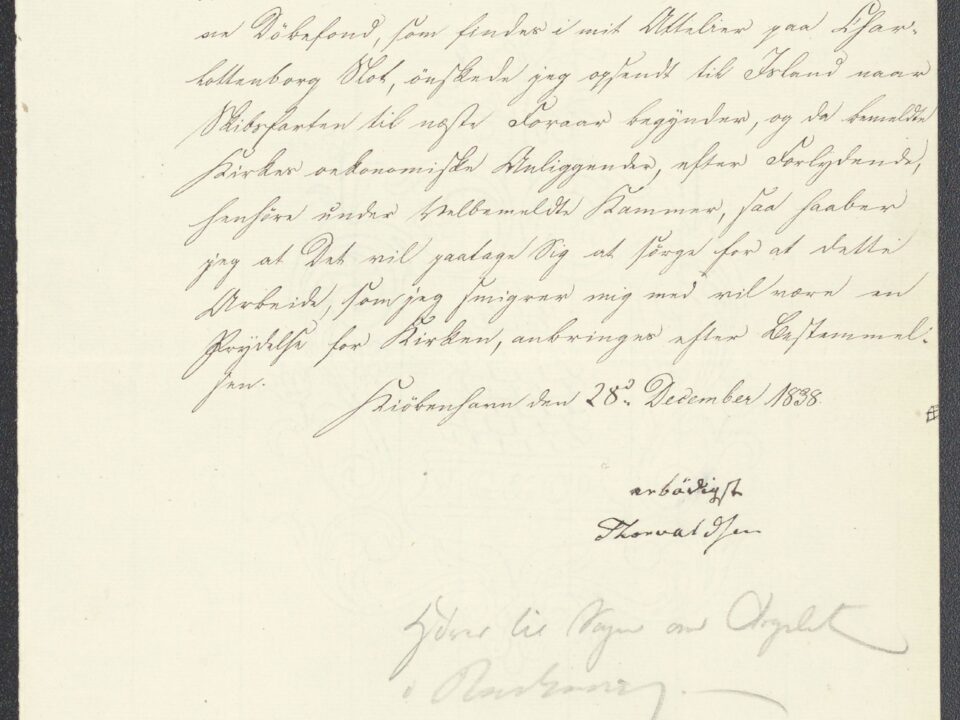 ne Döbefond, som findes i mit Attelier paa Char-
lottenborg Slot, önskede jeg opsendt til Island naar
Skibsfarten til næste Foraar begÿnder, og da bemeldte
Kirkes oekonomiske Anliggender, efter Forlydende,
henhöre under Velbemeldte Kammer, saa haaber
jeg at Det vil paatage Sig at sörge for at dette
Arbeide, som jeg smigrer mig med vil være en
Prÿdelse for Kirken, anbringes efter Bestemmel-
sen.
Kiöbenhavn den 28d. December 1838.
erbödigst
Thorvaldsen
til Sagen om
i